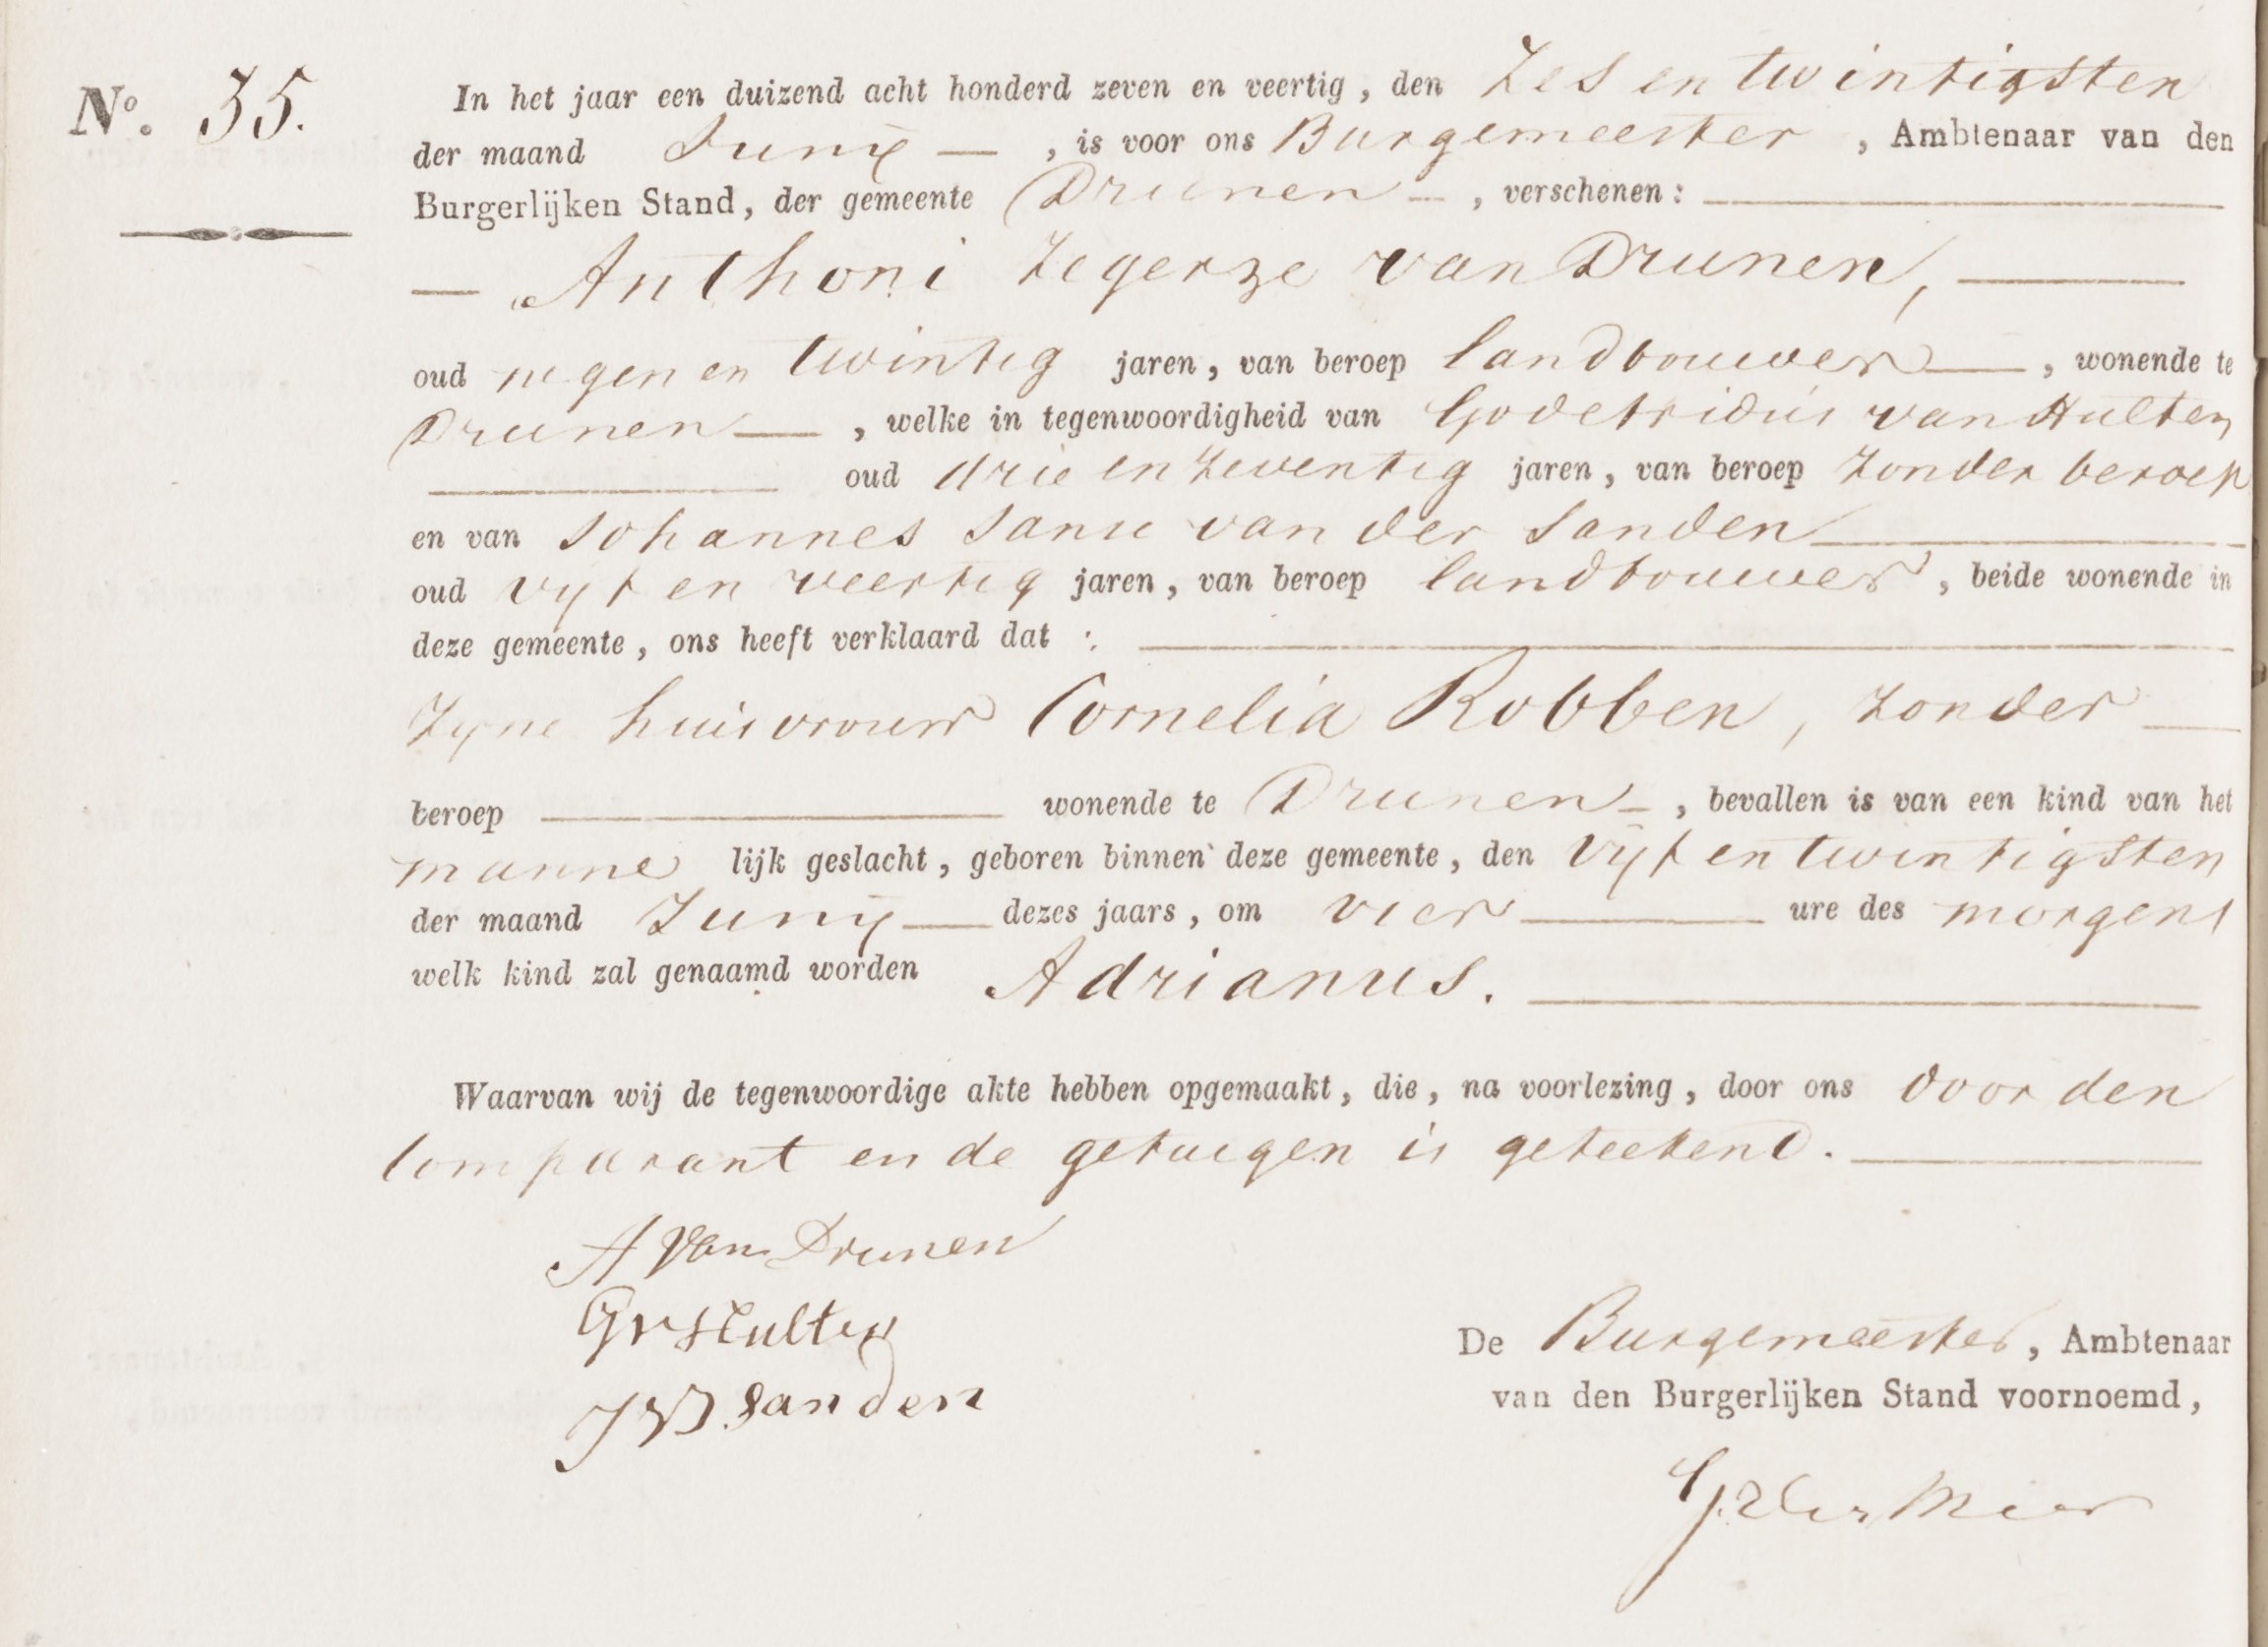 No. 35.
In het jaar een duizend acht honderd zeven en veertig, den Zes en twintigsten
der maand Junij —, is voor ons Burgemeester, Ambtenaar van den
Burgerlijken Stand, der gemeente Drunen —, verschenen:
— Anthoni Zegerze van Drunen, —
oud negen en twintig jaren, van beroep landbouwer —, wonende te
Drunen —, welke in tegenwoordigheid van Godefridus van Hulten
— oud drie en zeventig jaren, van beroep zonder beroep
en van Johannes Janse van der Sanden —
oud vyf en veertig jaren, van beroep landbouwer, beide wonende in
deze gemeente, ons heeft verklaard dat : —
Zyne huisvrouw Cornelia Robben, zonder —
beroep — wonende te Drunen —, bevallen is van een kind van het
mannelijk geslacht, geboren binnen deze gemeente, den vyf en twintigsten
der maand Junij — dezes jaars, om vier — ure des morgens
welk kind zal genaamd worden Adrianus. —
Waarvan wij de tegenwoordige akte hebben opgemaakt, die, na voorlezing, door ons door den
Comparant en de getuigen is geteekend. —
A van Drunen
G v Hulten
J V D Sanden
De Burgemeester, Ambtenaar
van den Burgerlijken Stand voornoemd,